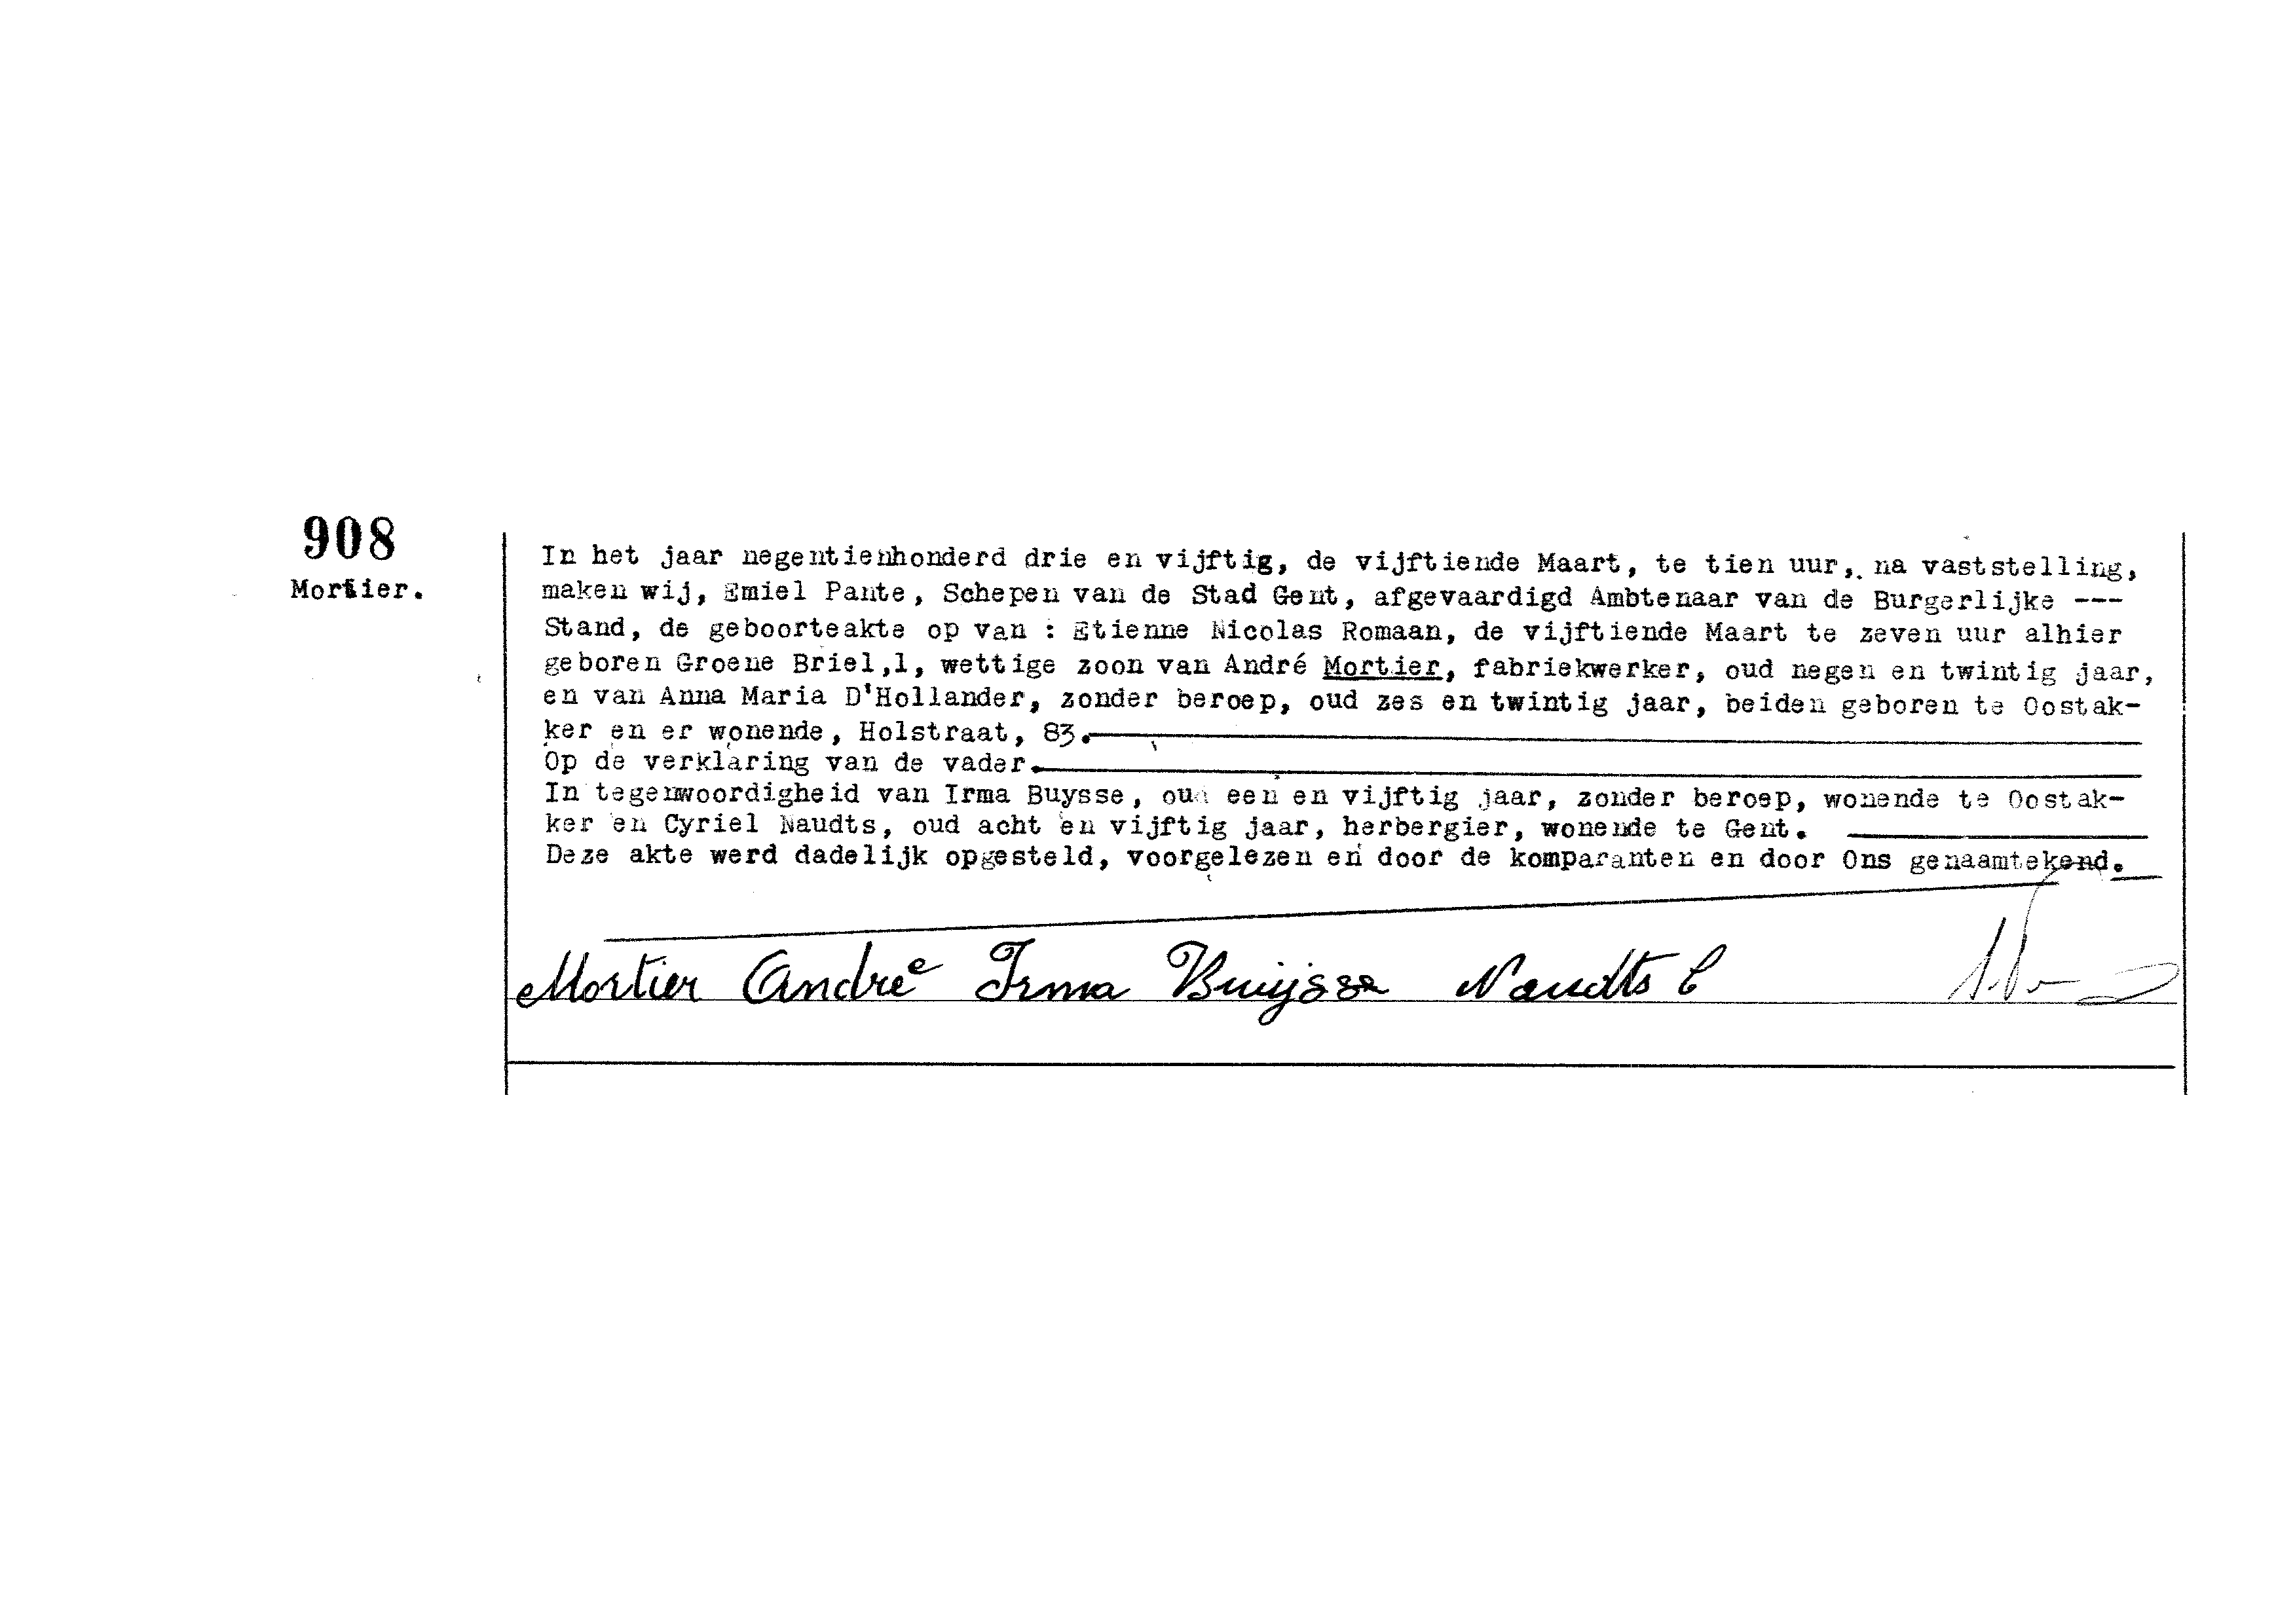 908
Mortier.
In het jaar negentienhonderd drie en vijftig, de vijftiende Maart, te tien uur, na vaststelling,
maken wij, Emiel Pante, Schepen van de Stad Gent, afgevaardigd Ambtenaar van de Burgerlijke ---
Stand, de geboorteakte op van : Etienne Nicolas Romaan, de vijftiende Maart te zeven uur alhier
geboren Groene Briel,1, wettige zoon van André Mortier, fabriekwerker, oud negen en twintig jaar,
en van Anna Maria D'Hollander, zonder beroep, oud zes en twintig jaar, beiden geboren te Oostak-
ker en er wonende, Holstraat, 83.
Op de verklaring van de vader.
In tegenwoordigheid van Irma Buysse, oud een en vijftig jaar, zonder beroep, wonende te Oostak-
ker en Cyriel Naudts, oud acht en vijftig jaar, herbergier, wonende te Gent.
Deze akte werd dadelijk opgesteld, voorgelezen en door de komparanten en door Ons genaamtekend.
Mortier André Irma Buijsse Naudts C